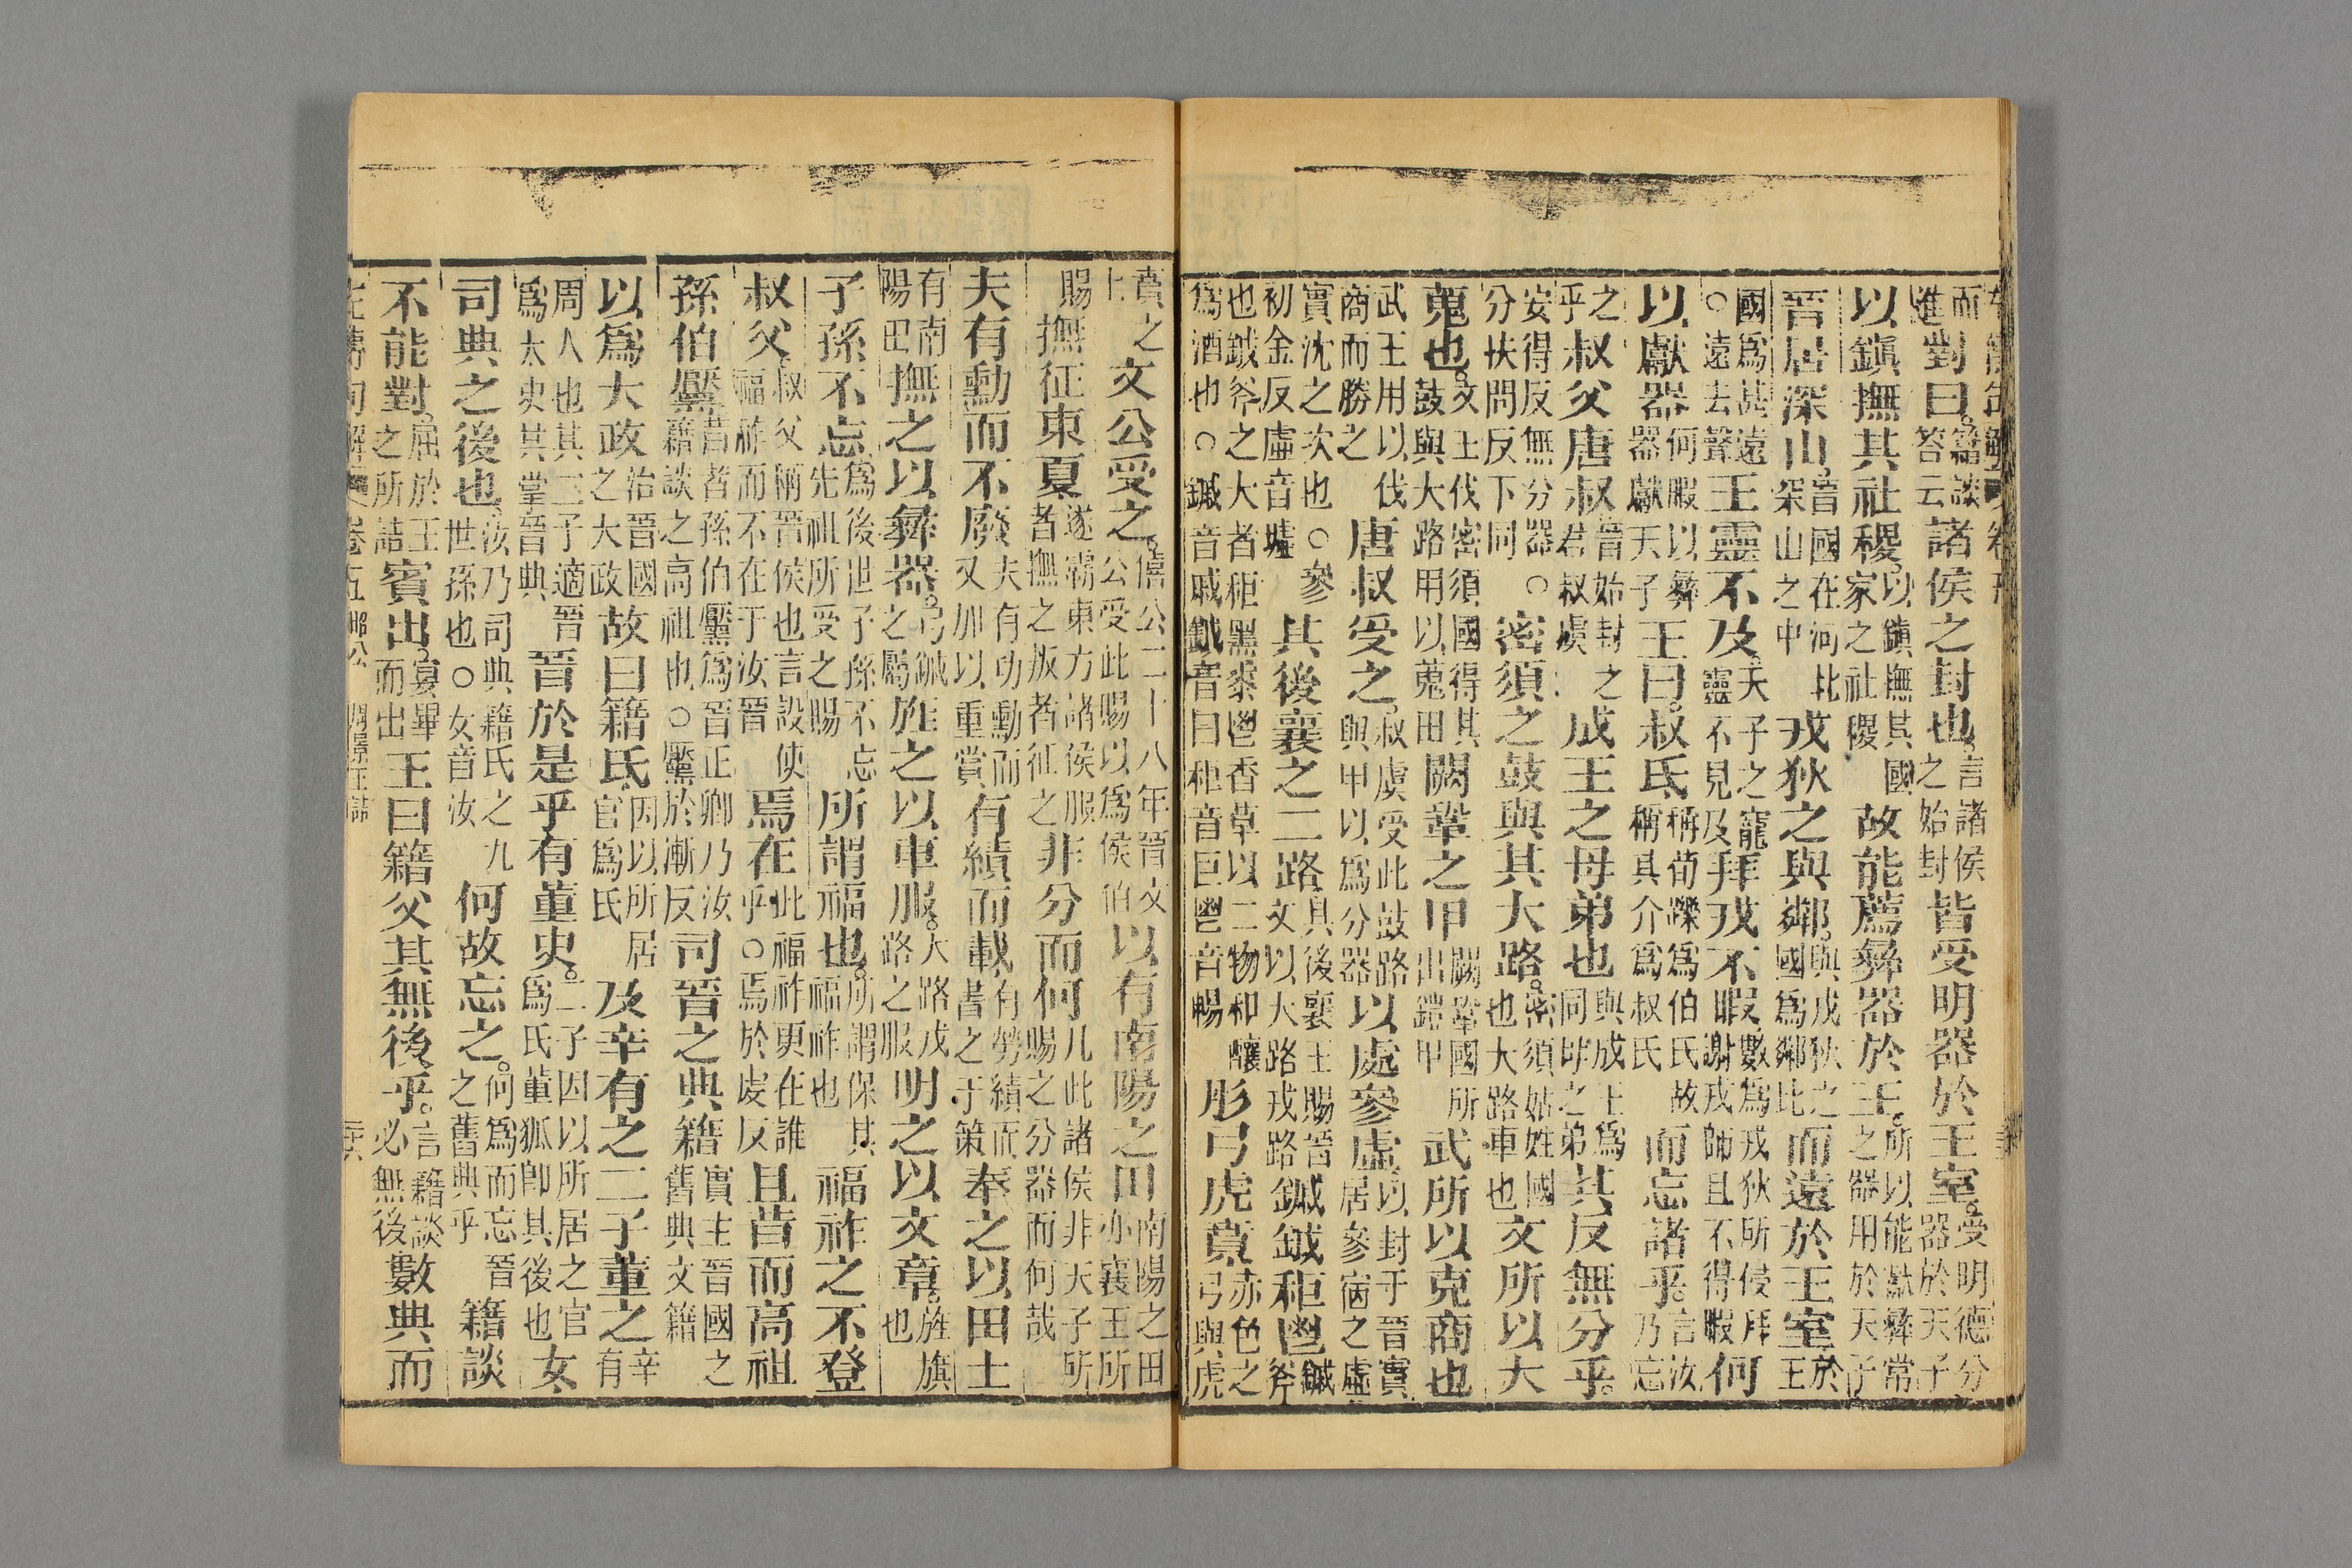 而進對曰。籍談答云諸侯之封也。言諸侯之始封皆受明器於王室。受明德分器於天子
以鎮撫其社稷。以鎮撫其國家之社稷故能薦彝器於王。所以能獻彝常之器用於天子
晉居深山。晉國在河北深山之中戎狄之與鄰。與戎狄之國爲鄰比而遠於王室於王
國爲甚遠○遠去聲王靈不及。天子之寵靈不見及拜戎不暇。數爲戎狄所侵拜謝戎師且不得暇何
以獻器何暇以彝器獻天子王曰。叔氏稱荀躒爲伯氏故稱其介爲叔氏而忘諸乎。言汝乃忘
之乎叔父唐叔晉始封之君叔虞成王之母弟也與成王爲同母之弟其反無分乎。
安得反無分器○分扶問反下同密須之鼓與其大路。密須姞姓國也大路車也文所以大
蒐也。文王伐密須國得其鼓與大路用以蒐田闕鞏之甲闕鞏國所出鎧甲武所以克商也
武王用以伐商而勝之唐叔受之。叔虞受此鼓路與甲以爲分器以處參虛以封于晉實居參宿之虛
實沈之次也○參初金反虛音墟其後襄之二路其後襄王賜晉文以大路戎路鏚鉞秬鬯鏚斧
也鉞斧之大者秬黑黍鬯香草以二物和釀爲酒也○鏚音戚鉞音曰秬音巨鬯音暢彤弓虎賁赤色之弓與虎
賁之士文公受之。僖公二十八年晉文公受此賜以爲侯伯以有南陽之田南陽之田亦襄王所
賜撫征東夏遂霸東方諸侯服者撫之叛者征之非分而何凡此諸侯非天子所賜之分器而何哉
夫有勳而不廢夫有功勳而又加以重賞有績而載有勞績而書之于策奉之以田土
有南陽田撫之以彝器。弓鉞之屬旌之以車服。大路戎路之服明之以文章。旌旗也
子孫不忘爲後世子孫不忘先祖所受之賜所謂福也。所謂保其福祚也福祚之不登
叔父叔父稱晉侯也言設使福祚而不在于汝晉焉在此福祚更在誰乎○焉於虔反且昔而高祖
孫伯黶昔者孫伯黶爲晉正卿乃汝籍談之高祖也○黶於漸反司晉之典籍實主晉國之舊典文籍
以爲大政治晉國之大政故曰籍氏因以所居官爲氏及辛有之二子董之辛有
周人也其二子適晉爲太史其掌晉典晉於是乎有董史。二子因以所居之官爲氏董狐卽其後也女
司典之後也汝乃司典籍氏之九世孫也○女音汝何故忘之。何爲而忘晉之舊典乎籍談
不能對。屈於王之所詰賓出。宴畢而出王曰籍父其無後乎。言籍談必無後數典而
左傳句解 卷五 昭公